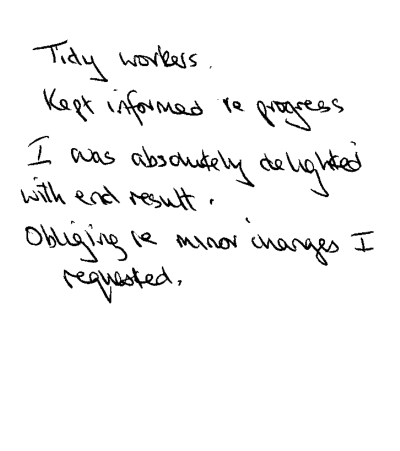 Tidy workers.
Kept informed re progress
I was absolutely delighted
with end result.
Obliging re minor changes I
requested.